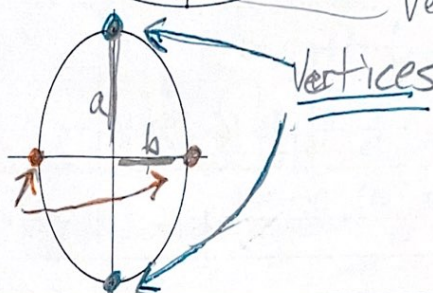 Ve
Vertices
a
b